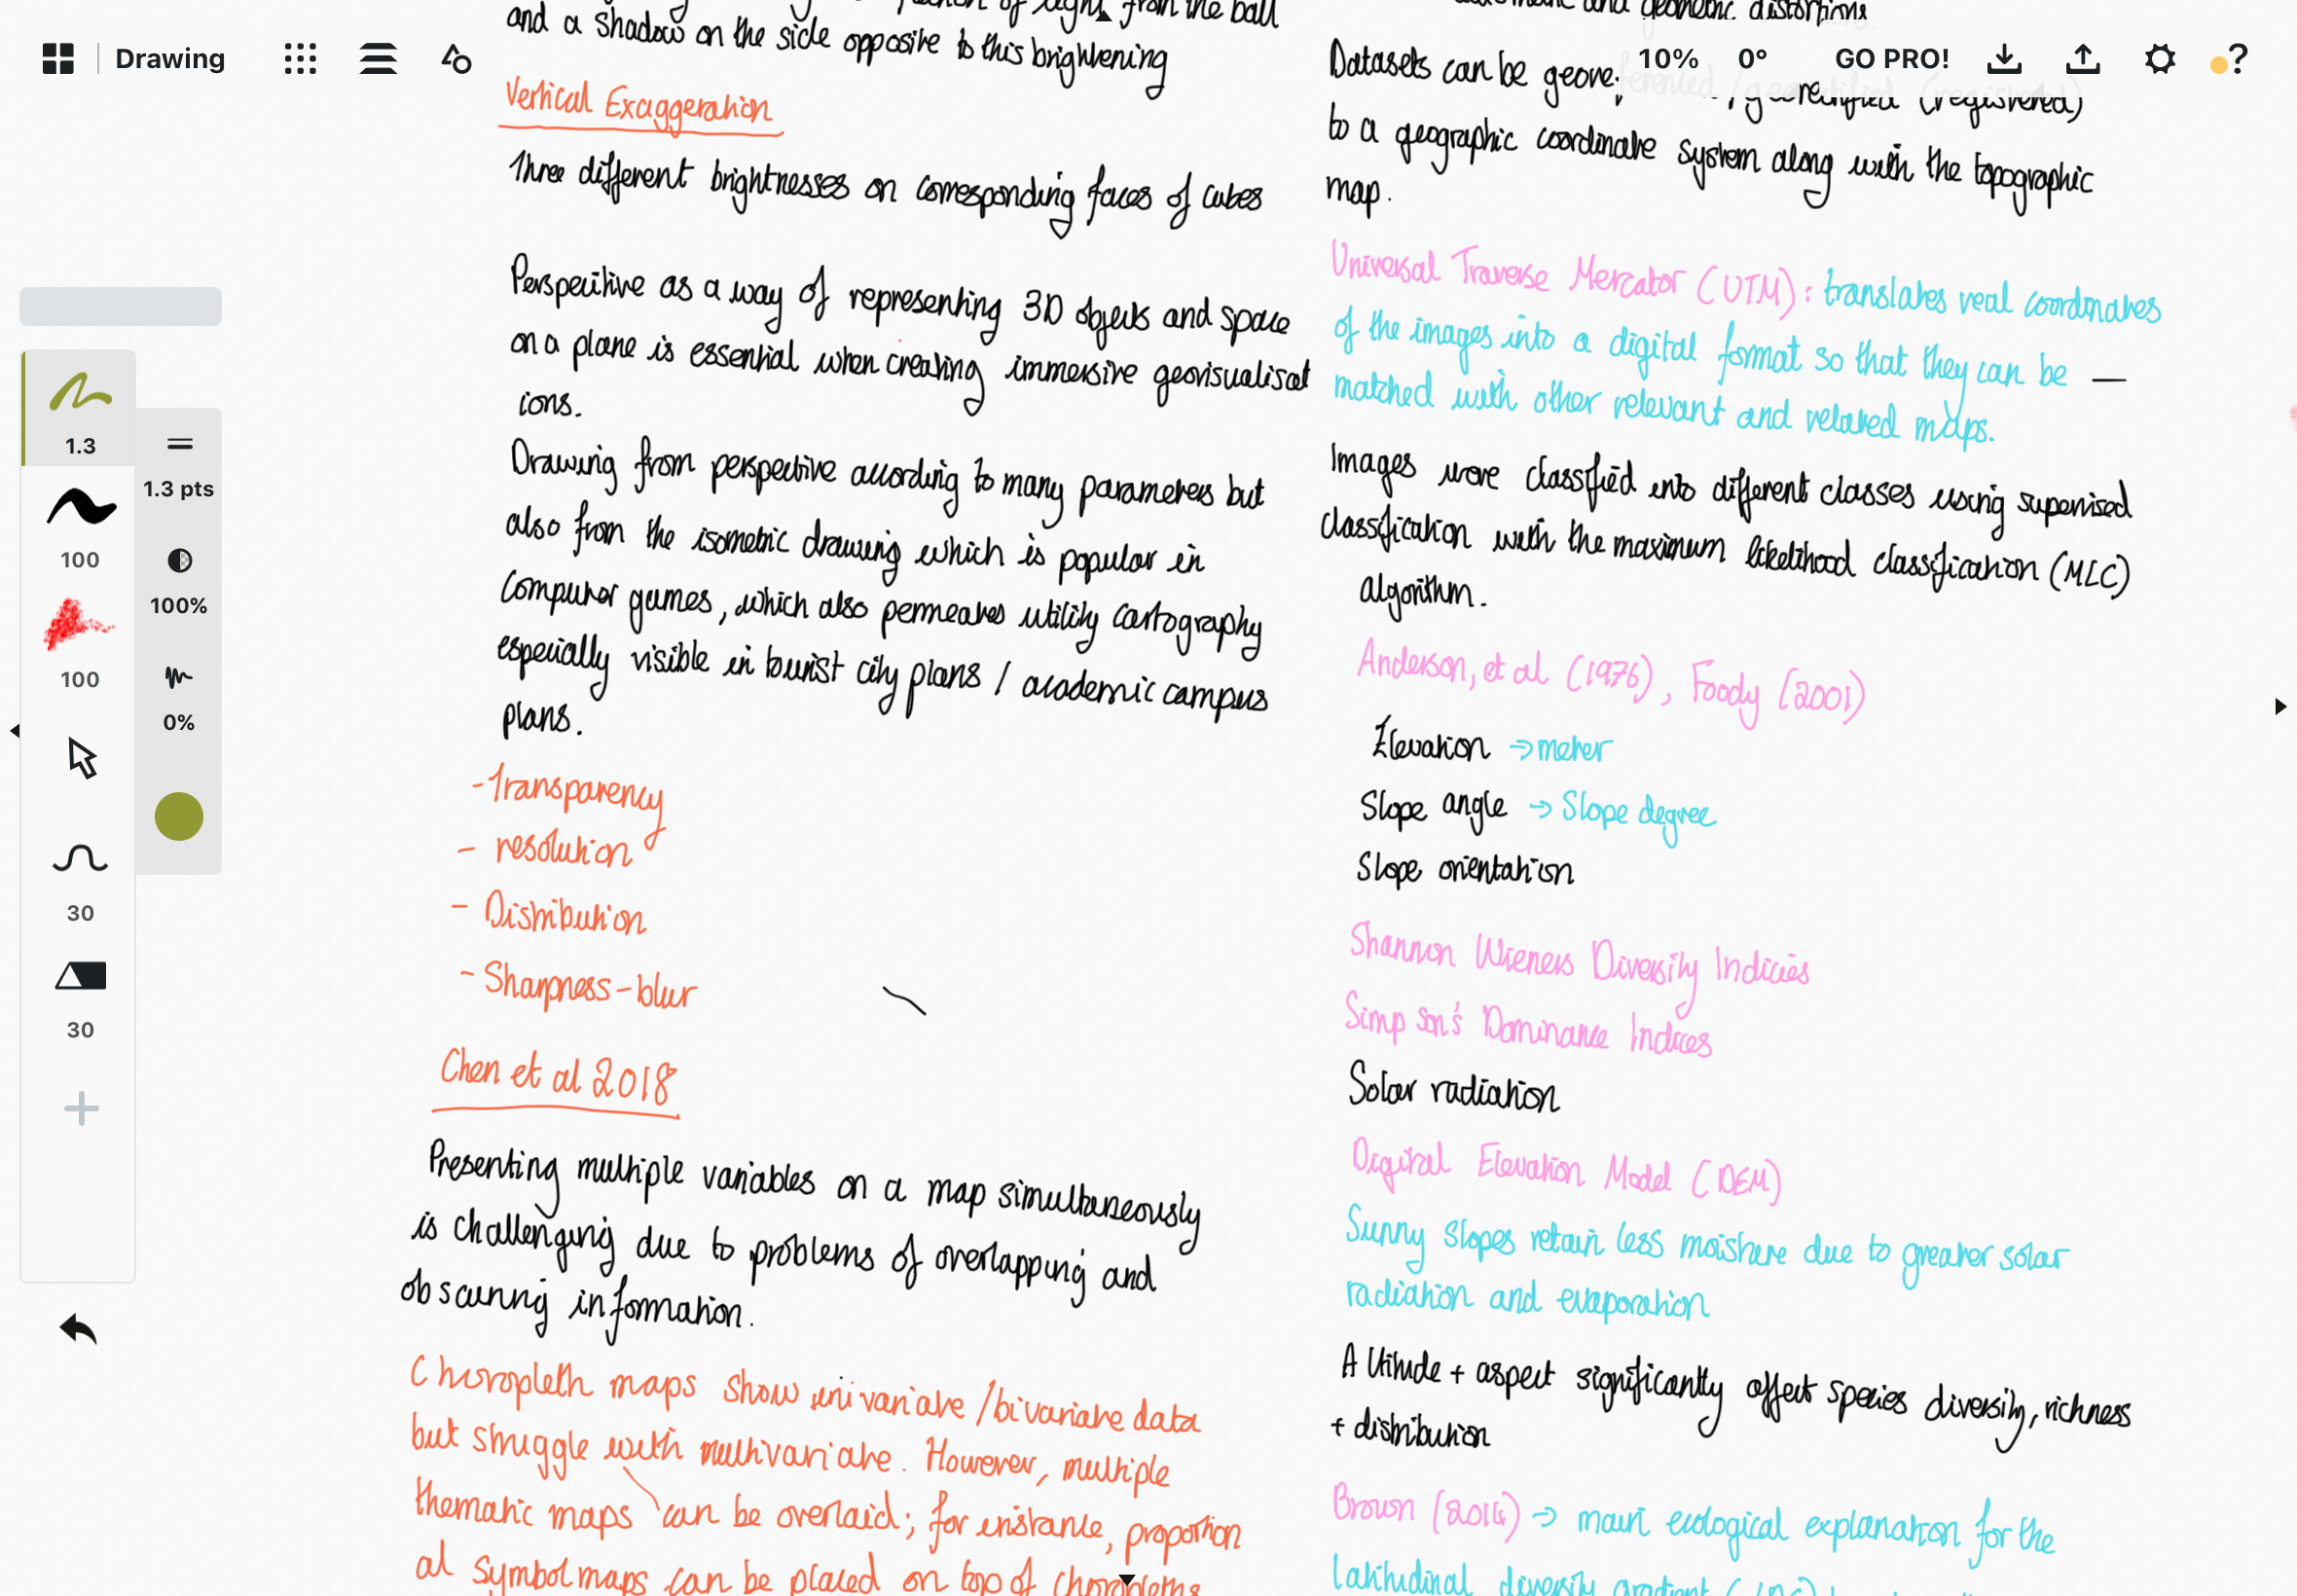 Drawing
10%
0°
GO PRO!
?
1.3
100
100
30
30
1.3 pts
100%
0%
of light from the ball
and a shadow on the side opposite to this brightening
Vertical Exaggeration
Three different brightnesses on corresponding faces of cubes
Perspective as a way of representing 3D objects and space
on a plane is essential when creating immersive geovisualisat
ions.
Drawing from perspective according to many parameters but
also from the isometric drawing which is popular in
computer games, which also permeates utility cartography
especially visible in tourist city plans / academic campus
plans.
- Transparency
- resolution
- Distribution
- Sharpness - blur
Chen et al 2018
Presenting multiple variables on a map simultaneously
is challenging due to problems of overlapping and
obscuring information.
Choropleth maps show univariate / bivariate data
but struggle with multivariate. However, multiple
thematic maps can be overlaid; for instance, proportion
al symbol maps can be placed on top of choropleths
and geometric distortions
Datasets can be georeferenced / georectified (registered)
to a geographic coordinate system along with the topographic
map.
Universal Traverse Mercator (UTM): translates real coordinates
of the images into a digital format so that they can be —
matched with other relevant and related maps.
Images were classified into different classes using supervised
classification with the maximum likelihood classification (MLC)
algorithm.
Anderson, et al (1976), Foody (2001)
Elevation → meter
Slope angle → Slope degree
Slope orientation
Shannon Wieners Diversity Indicies
Simpson's Dominance Indices
Solar radiation
Digital Elevation Model (DEM)
Sunny slopes retain less moisture due to greater solar
radiation and evaporation
Altitude + aspect significantly affect species diversity, richness
+ distribution
Brown (2014) → main ecological explanation for the
latitudinal diversity gradient